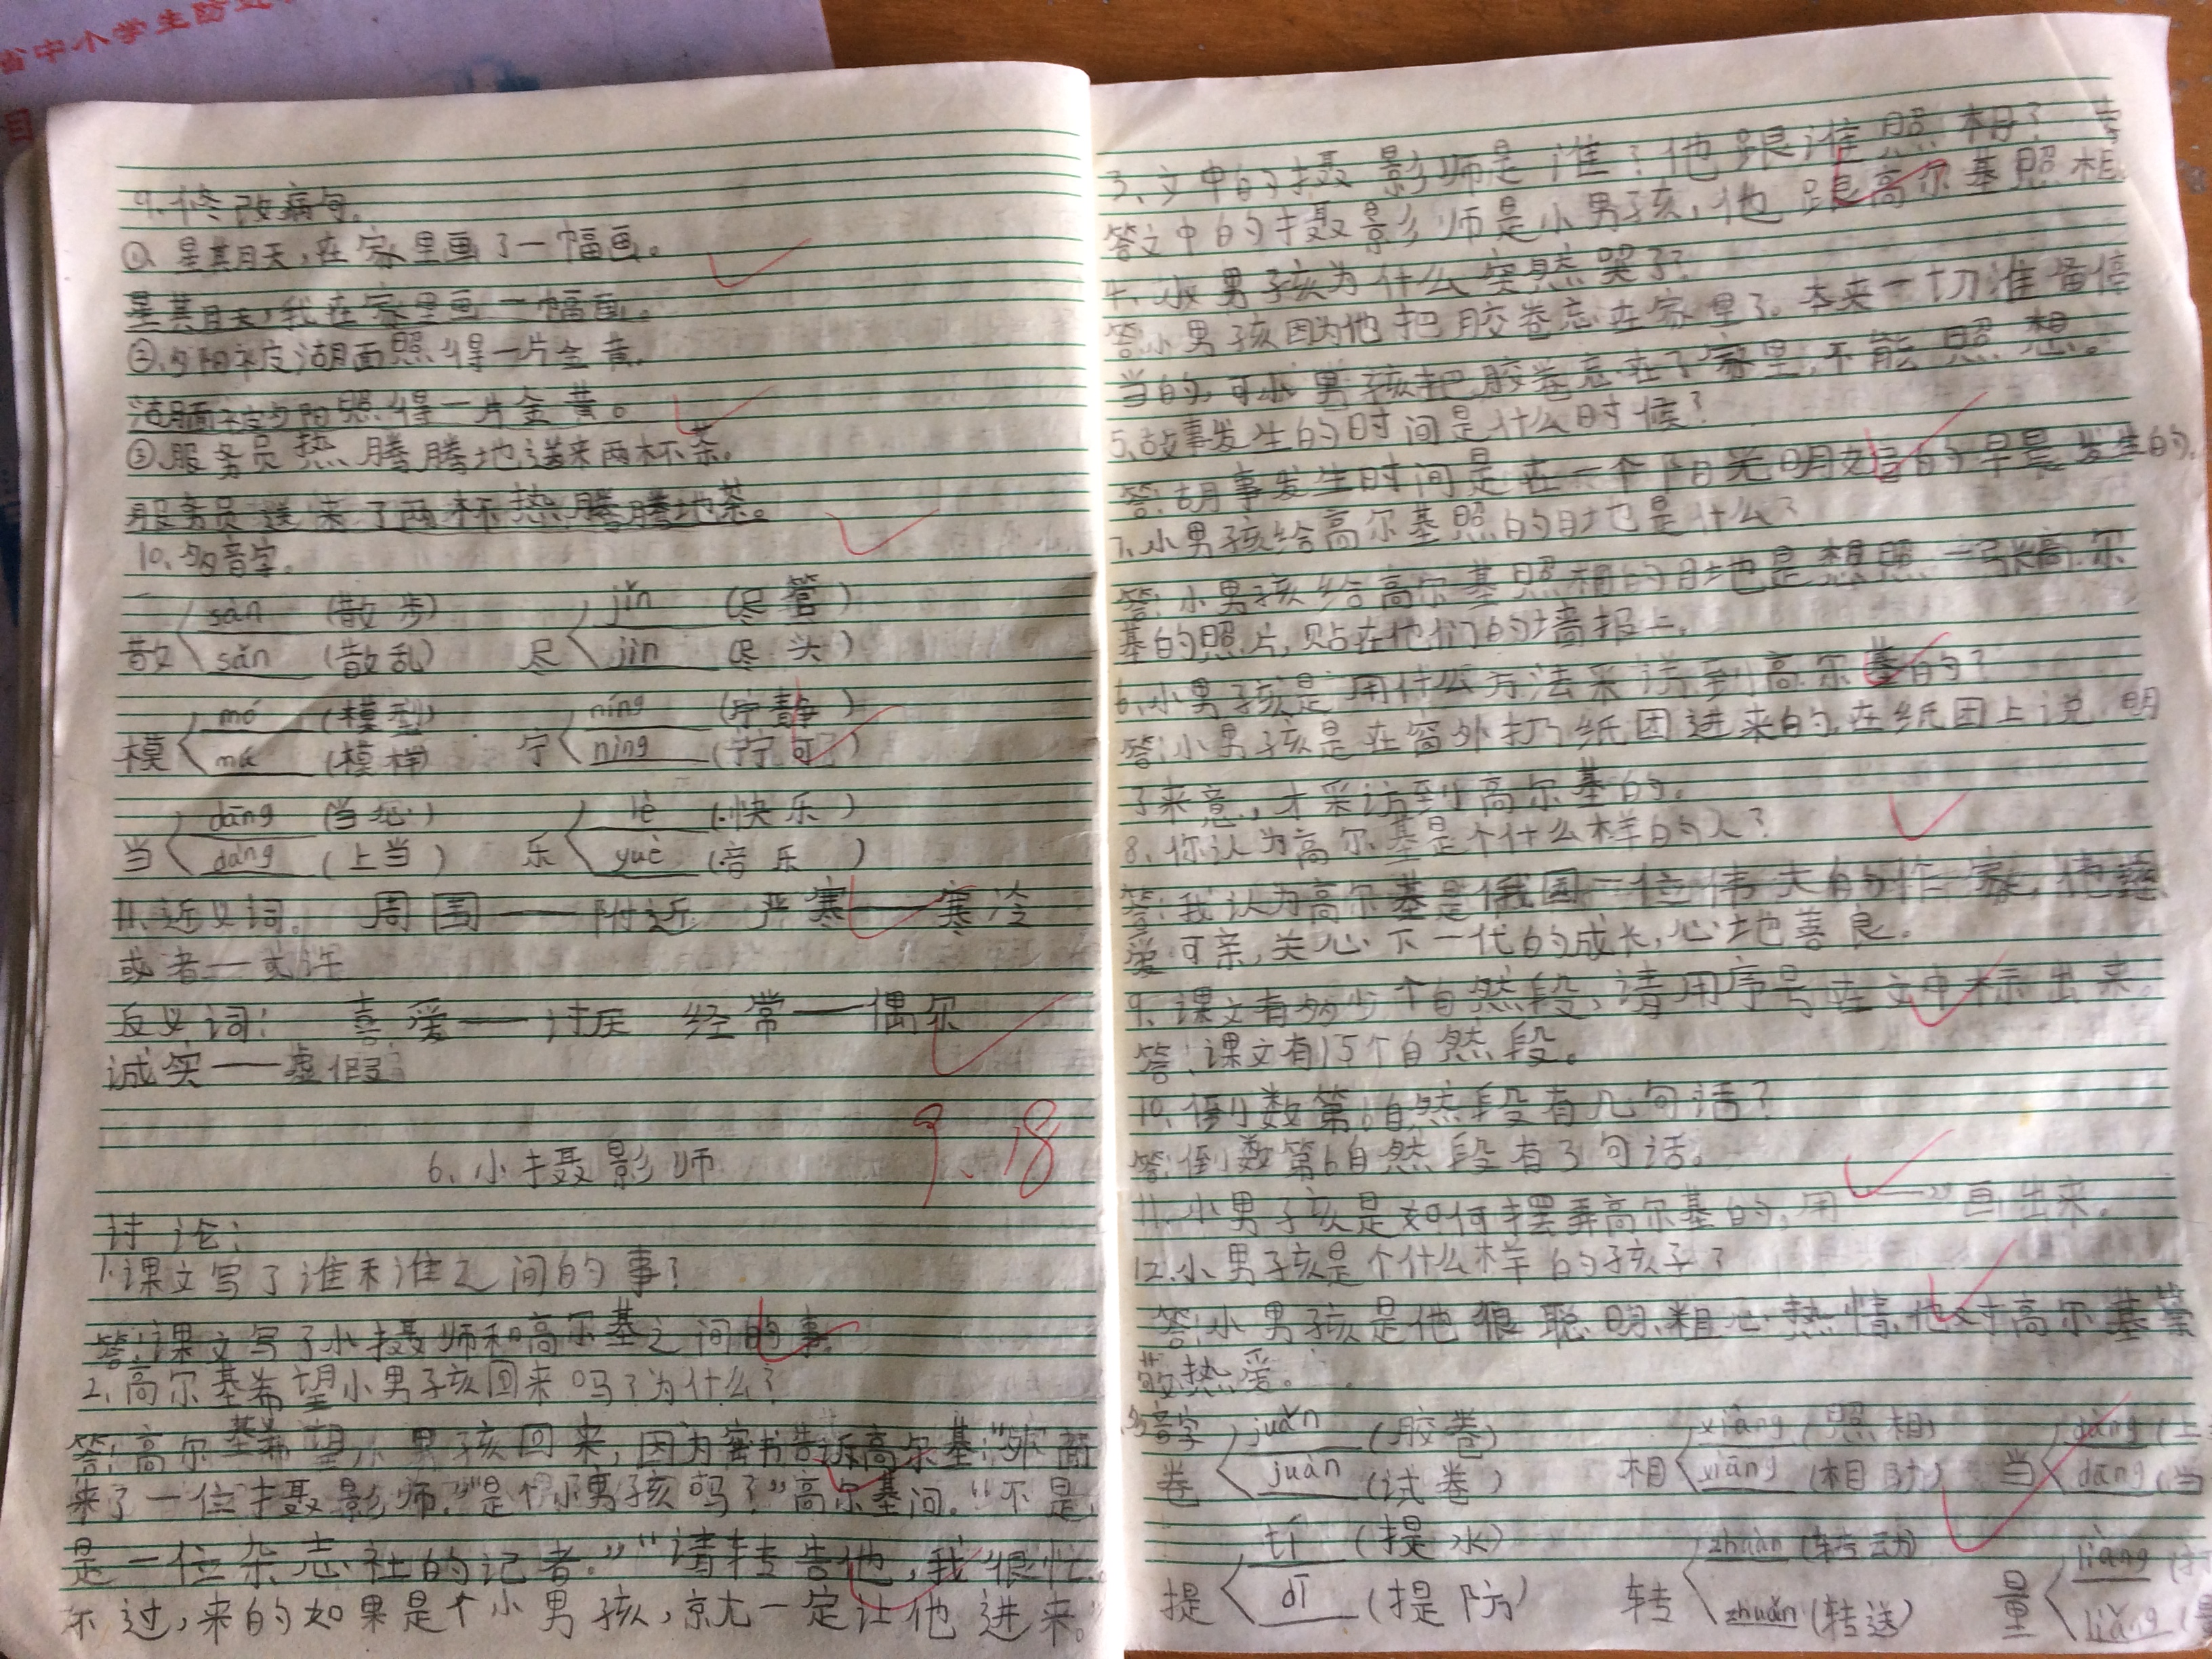 省中小学生防近
目
9.修改病句。
①星期天,在家里画了一幅画。
星期天,我在家里画一幅画。
②夕阳被湖面照得一片金黄。
湖面被夕阳照得一片金黄。
③服务员热腾腾地送来两杯茶。
服务员送来了两杯热腾腾地茶。
10、多音字。
散 sàn (散步) 尽 jǐn (尽管)
sǎn (散乱) jìn (尽头)
模 mó (模型) 宁 níng (宁静)
mú (模样) nìng (宁可)
当 dāng (当心) 乐 lè (快乐)
dàng (上当) yuè (音乐)
11、近义词。 周围——附近 严寒——寒冷
或者—或许
反义词: 喜爱——讨厌 经常——偶尔
诚实——虚假
9.18
6、小摄影师
讨论:
1.课文写了谁和谁之间的事?
答:课文写了小摄师和高尔基之间的事。
2、高尔基希望小男孩回来吗?为什么?
答:高尔基希望小男孩回来,因为秘书告诉高尔基:“外面
来了一位摄影师。”“是个小男孩吗?”高尔基问。“不是,
是一位杂志社的记者。”“请转告他,我很忙。
不过,来的如果是个小男孩,就一定让他进来。
3、文中的摄影师是谁?他跟谁照相?
答文中的摄影师是小男孩,他跟高尔基照相
4、小男孩为什么突然哭了?
答:小男孩因为他把胶卷忘在家里了。本来一切准备停
当的,可小男孩把胶卷忘在了家里,不能照想。
5、故事发生的时间是什么时候?
答:胡事发生时间是在一个阳光明文自的早晨发生的。
7、小男孩给高尔基照的目地是什么?
答:小男孩给高尔基照相的目地是想照一张高尔
基的照片,贴在他们的墙报上。
6、小男孩是用什么方法采访到高尔基的?
答:小男孩是在窗外扔纸团进来的,在纸团上说明
了来意,才采访到高尔基的。
8、你认为高尔基是个什么样的人?
答:我认为高尔基是俄国一位伟大的作家,他
爱可亲,关心下一代的成长,心地善良。
9、课文有多少个自然段,请用序号在文中标出来。
答:课文有15个自然段。
10、倒数第6自然段有几句话?
答:倒数第6自然段有3句话。
11、小男孩是如何摆弄高尔基的,用“——”画出来。
12、小男孩是个什么样的孩子?
答:小男孩是他很聪明、粗心、热情,他对高尔基崇
敬热爱。
多音字
卷 juǎn (胶卷) 相 xiàng (照相) 当 dàng (上
juàn (试卷) xiāng (相助) dāng (当
提 tí (提水) 转 zhuàn (转动) 量 liáng
dī (提防) zhuǎn (转送) liàng